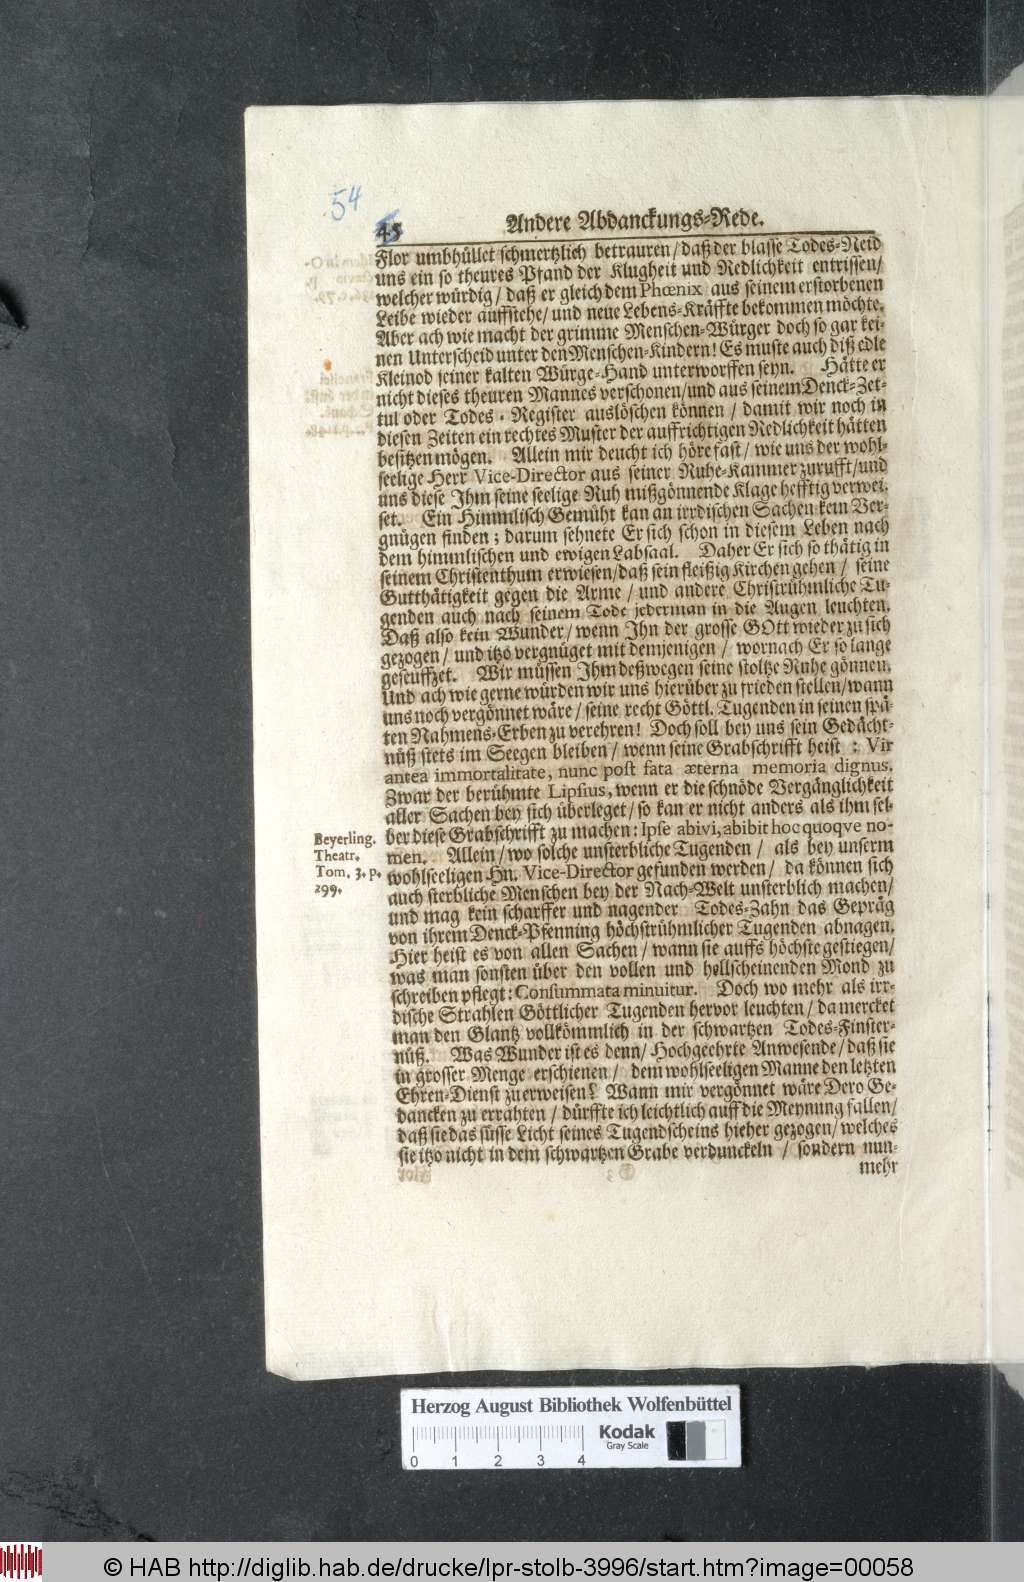 54
45
Andere Abdanckungs-Rede.
Flor umbhüllet schmertzlich betrauren / daß der blasse Todes-Neid
uns ein so theures Pfand der Klugheit und Redlichkeit entrissen /
welcher würdig / daß er gleich dem Phœnix aus seinem erstorbenen
Leibe wieder auffstehe / und neue Lebens-Kräffte bekommen möchte.
Aber ach wie macht der grimme Menschen-Würger doch so gar kei-
nen Unterscheid unter den Menschen-Kindern! Es muste auch diß edle
Kleinod seiner kalten Würge-Hand unterworffen seyn. Hätte er
nicht dieses theuren Mannes verschonen / und aus seinem Denck-Zet-
tul oder Todes-Register auslöschen können / damit wir noch in
diesen Zeiten ein rechtes Muster der auffrichtigen Redlichkeit hätten
besitzen mögen. Allein mir deucht ich höre fast / wie uns der wohl-
seelige Herr Vice-Director aus seiner Ruhe-Kammer zurufft / und
uns diese Ihm seine seelige Ruh mißgönnende Klage hefftig verwei-
set. Ein Himmlisch Gemüht kan an irrdischen Sachen kein Ver-
gnügen finden; darum sehnete Er sich schon in diesem Leben nach
dem himmlischen und ewigen Labsaal. Daher Er sich so thätig in
seinem Christenthum erwiesen / daß sein fleißig Kirchen gehen / seine
Gutthätigkeit gegen die Arme / und andere Christrühmliche Tu-
genden auch nach seinem Tode jederman in die Augen leuchten.
Daß also kein Wunder / wenn Ihn der grosse GOtt wieder zu sich
gezogen / und itzo vergnüget mit demjenigen / wornach Er so lange
geseuffzet. Wir müssen Ihm deßwegen seine stoltze Ruhe gönnen.
Und ach wie gerne würden wir uns hierüber zu frieden stellen / wann
uns noch vergönnet wäre / seine recht Göttl. Tugenden in seinen spä-
ten Nahmens-Erben zu verehren! Doch soll bey uns sein Gedächt-
nüß stets im Seegen bleiben / wenn seine Grabschrifft heist : Vir
antea immortalitate, nunc post fata æterna memoria dignus.
Zwar der berühmte Lipsius, wenn er die schnöde Vergänglichkeit
aller Sachen bey sich überleget / so kan er nicht anders als ihm sel-
ber diese Grabschrifft zu machen: Ipse abivi, abibit hoc quoqve no-
men. Allein / wo solche unsterbliche Tugenden / als bey unserm
wohlseeligen Hn. Vice-Director gefunden werden / da können sich
auch sterbliche Menschen bey der Nach-Welt unsterblich machen /
und mag kein scharffer und nagender Todes-Zahn das Gepräg
von ihrem Denck-Pfenning höchstrühmlicher Tugenden abnagen.
Hier heist es von allen Sachen / wann sie auffs höchste gestiegen /
was man sonsten über den vollen und hellscheinenden Mond zu
schreiben pflegt: Consummata minuitur. Doch wo mehr als irr-
dische Strahlen Göttlicher Tugenden hervor leuchten / da mercket
man den Glantz vollkömmlich in der schwartzen Todes-Finster-
nüß. Was Wunder ist es denn / Hochgeehrte Anwesende / daß sie
in grosser Menge erschienen / dem wohlseeligen Manne den letzten
Ehren-Dienst zu erweisen! Wann mir vergönnet wäre Dero Ge-
dancken zu errahten / dürffte ich leichtlich auff die Meynung fallen /
daß sie das süsse Licht seines Tugendscheins hieher gezogen / welches
sie itzo nicht in dem schwartzen Grabe verdunckeln / sondern nun-
mehr
Beyerling.
Theatr.
Tom. 3. p.
299.
Herzog August Bibliothek Wolfenbüttel
Kodak
Gray Scale
0 1 2 3 4
© HAB http://diglib.hab.de/drucke/lpr-stolb-3996/start.htm?image=00058